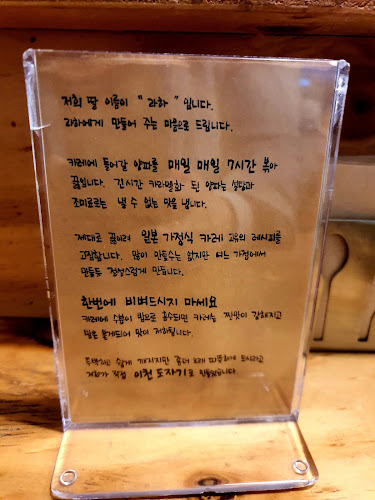 저희 딸 이름이 " 라하 " 입니다.
라하에게 만들어 주는 마음으로 드립니다.
카레에 들어갈 양파를 매일 매일 7시간 볶아
끓입니다. 긴시간 카라멜화 된 양파는 설탕과
조미료로는 낼 수 없는 맛을 냅니다.
제대로 끓이려 일본 가정식 카레 고유의 레시피를
고집합니다. 많이 만들수는 없지만 어느 가정에서
만들듯 정성스럽게 만듭니다.
한번에 비벼드시지 마세요
카레에 수분이 밥으로 흡수되면 카레는 짠맛이 강해지고
밥은 불게되어 맛이 저하됩니다.
투박하고 쉽게 깨지지만 좀더 오래 따뜻하게 드시라고
저희가 직접 이천 도자기로 만들었습니다.